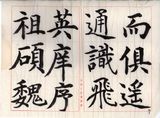 而俱遥
通識飛
英庠序
祖碩魏